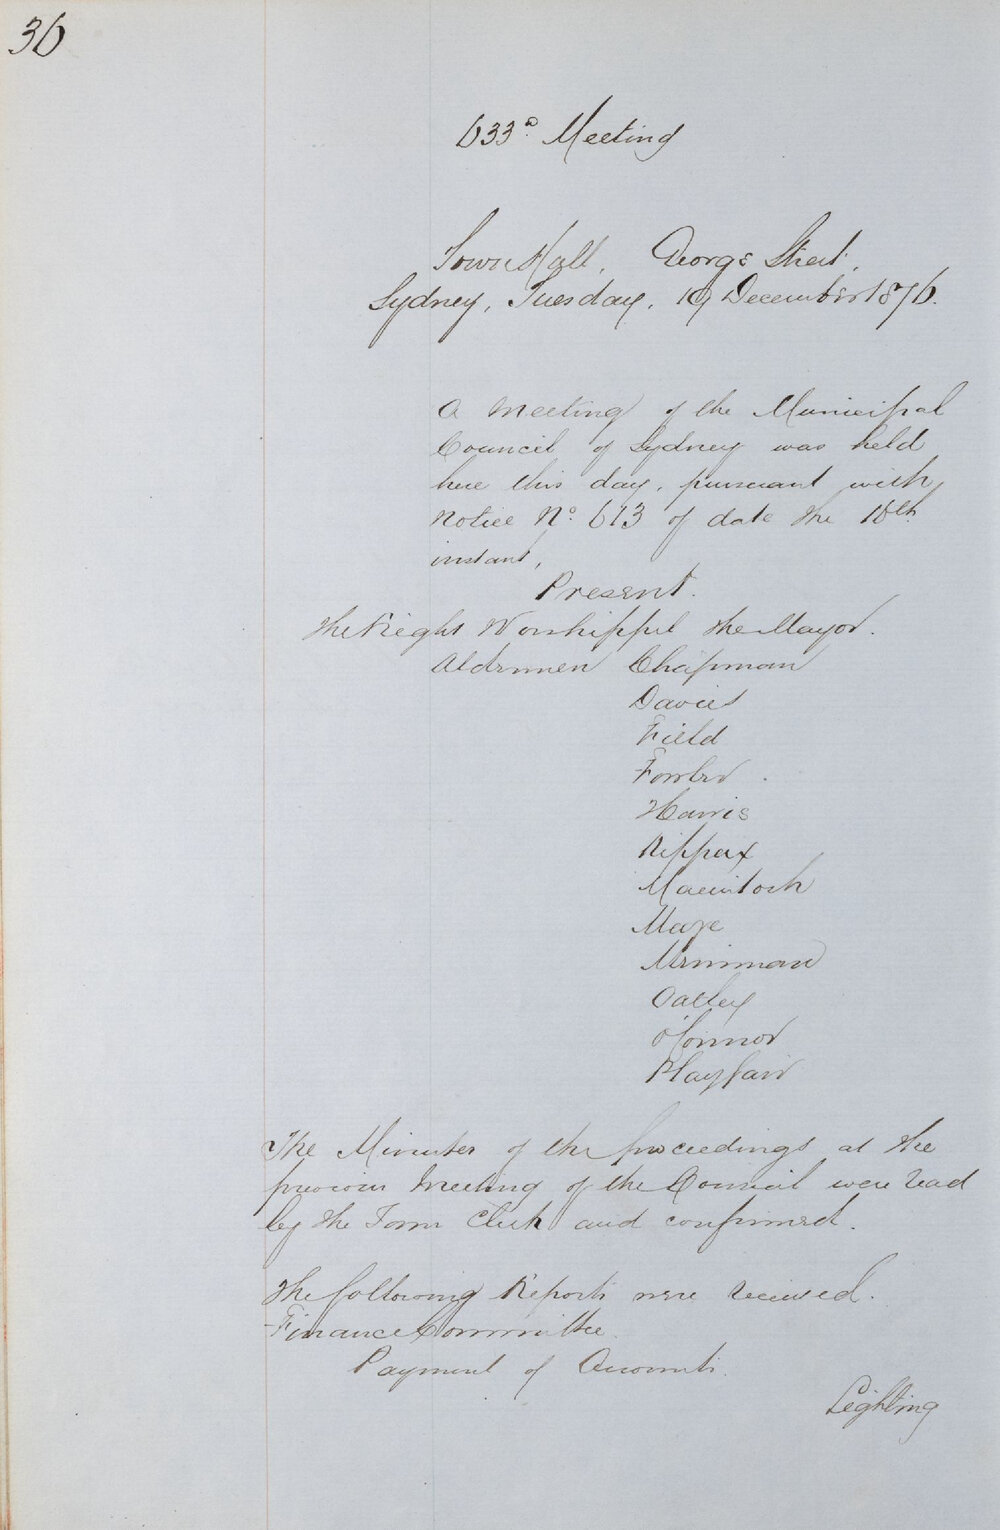 36
633d Meeting
Town Hall, George Street,
Sydney, Tuesday, 19 December 1876.
A Meeting of the Municipal
Council of Sydney was held
here this day, pursuant with
Notice No. 613 of date the 16th
instant,
Present.
The Right Worshipful the Mayor.
Aldermen Chapman
Davies
Field
Fowler
Harris
Kippax
Macintosh
Maze
Merriman
Oatley
O'Connor
Playfair
The Minutes of the proceedings at the
previous Meeting of the Council were read
by the Town Clerk and confirmed.
The following Reports were received.
Finance Committee.
Payment of Accounts.
Lighting